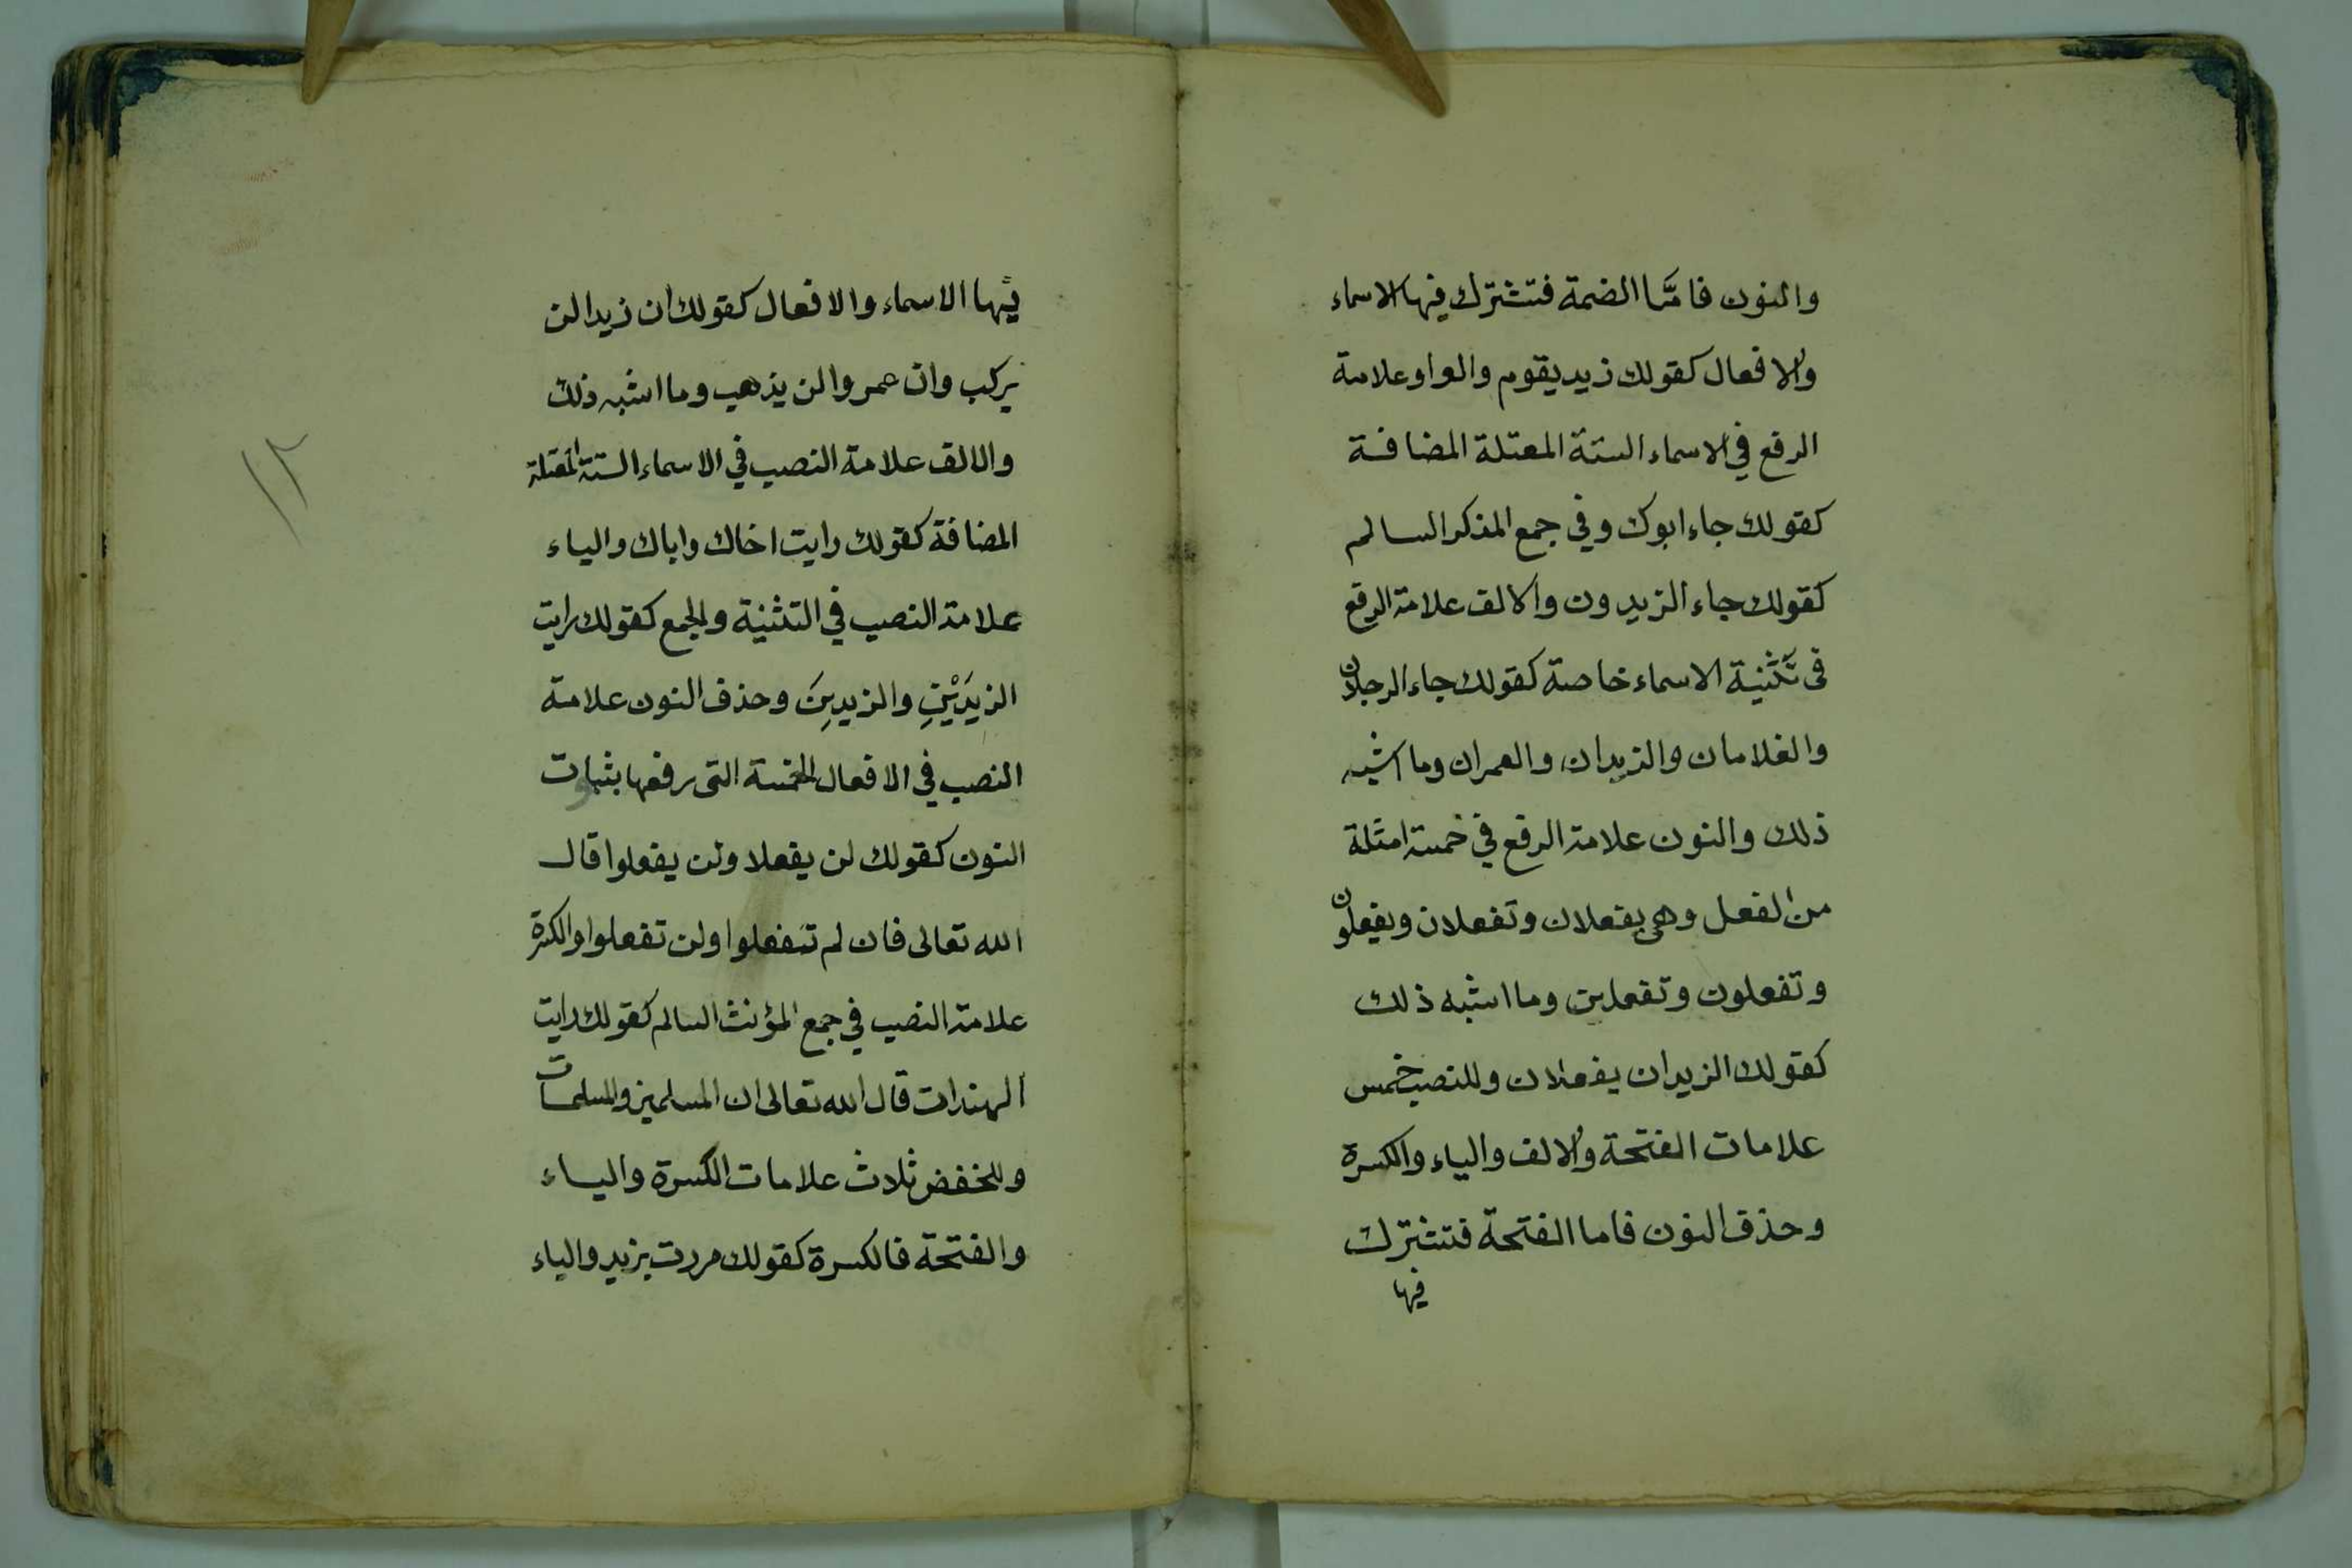 والنون فامَّا الضمة فتشترك فيها الاسماء
والافعال كقولك زيد يقوم والواو علامة
الرفع في الاسماء الستة المعتلة المضافة
كقولك جاء ابوك وفي جمع المذكر السالم
كقولك جاء الزيدون والالف علامة الرفع
في تَثنية الاسماء خاصة كقولك جاء الرجلان
والغلامان والزيدان والعمران وما اشبه
ذلك والنون علامة الرفع في خمسة امثلة
من الفعل وهي يفعلان وتفعلان ويفعلون
وتفعلون وتفعلين وما اشبه ذلك
كقولك الزيدان يفعلان وللنصب خمس
علامات الفتحة والالف والياء والكسرة
وحذف النون فاما الفتحة فتشترك
فيها
فيها الاسماء والافعال كقولك ان زيدا لن
يركب وان عمروا لن يذهب وما اشبه ذلك
والالف علامة النصب في الاسماء الستة المعتلة
المضافة كقولك رايت اخاك واباك والياء
علامة النصب في التثنية والجمع كقولك رايت
الزيدَيْنِ والزيدِينَ وحذف النون علامة
النصب في الافعال الخمسة التى رفعها بثبات
النون كقولك لن يفعلا ولن يفعلوا قال
الله تعالى فان لم تفعلوا ولن تفعلوا والكسرة
علامة النصب في جمع المؤنث السالم كقولك رايت
الهندات قال الله تعالى ان المسلمين والمسلمات
وللخفض ثلاث علامات الكسرة والياء
والفتحة فالكسرة كقولك مررت بزيد والياء
١٢